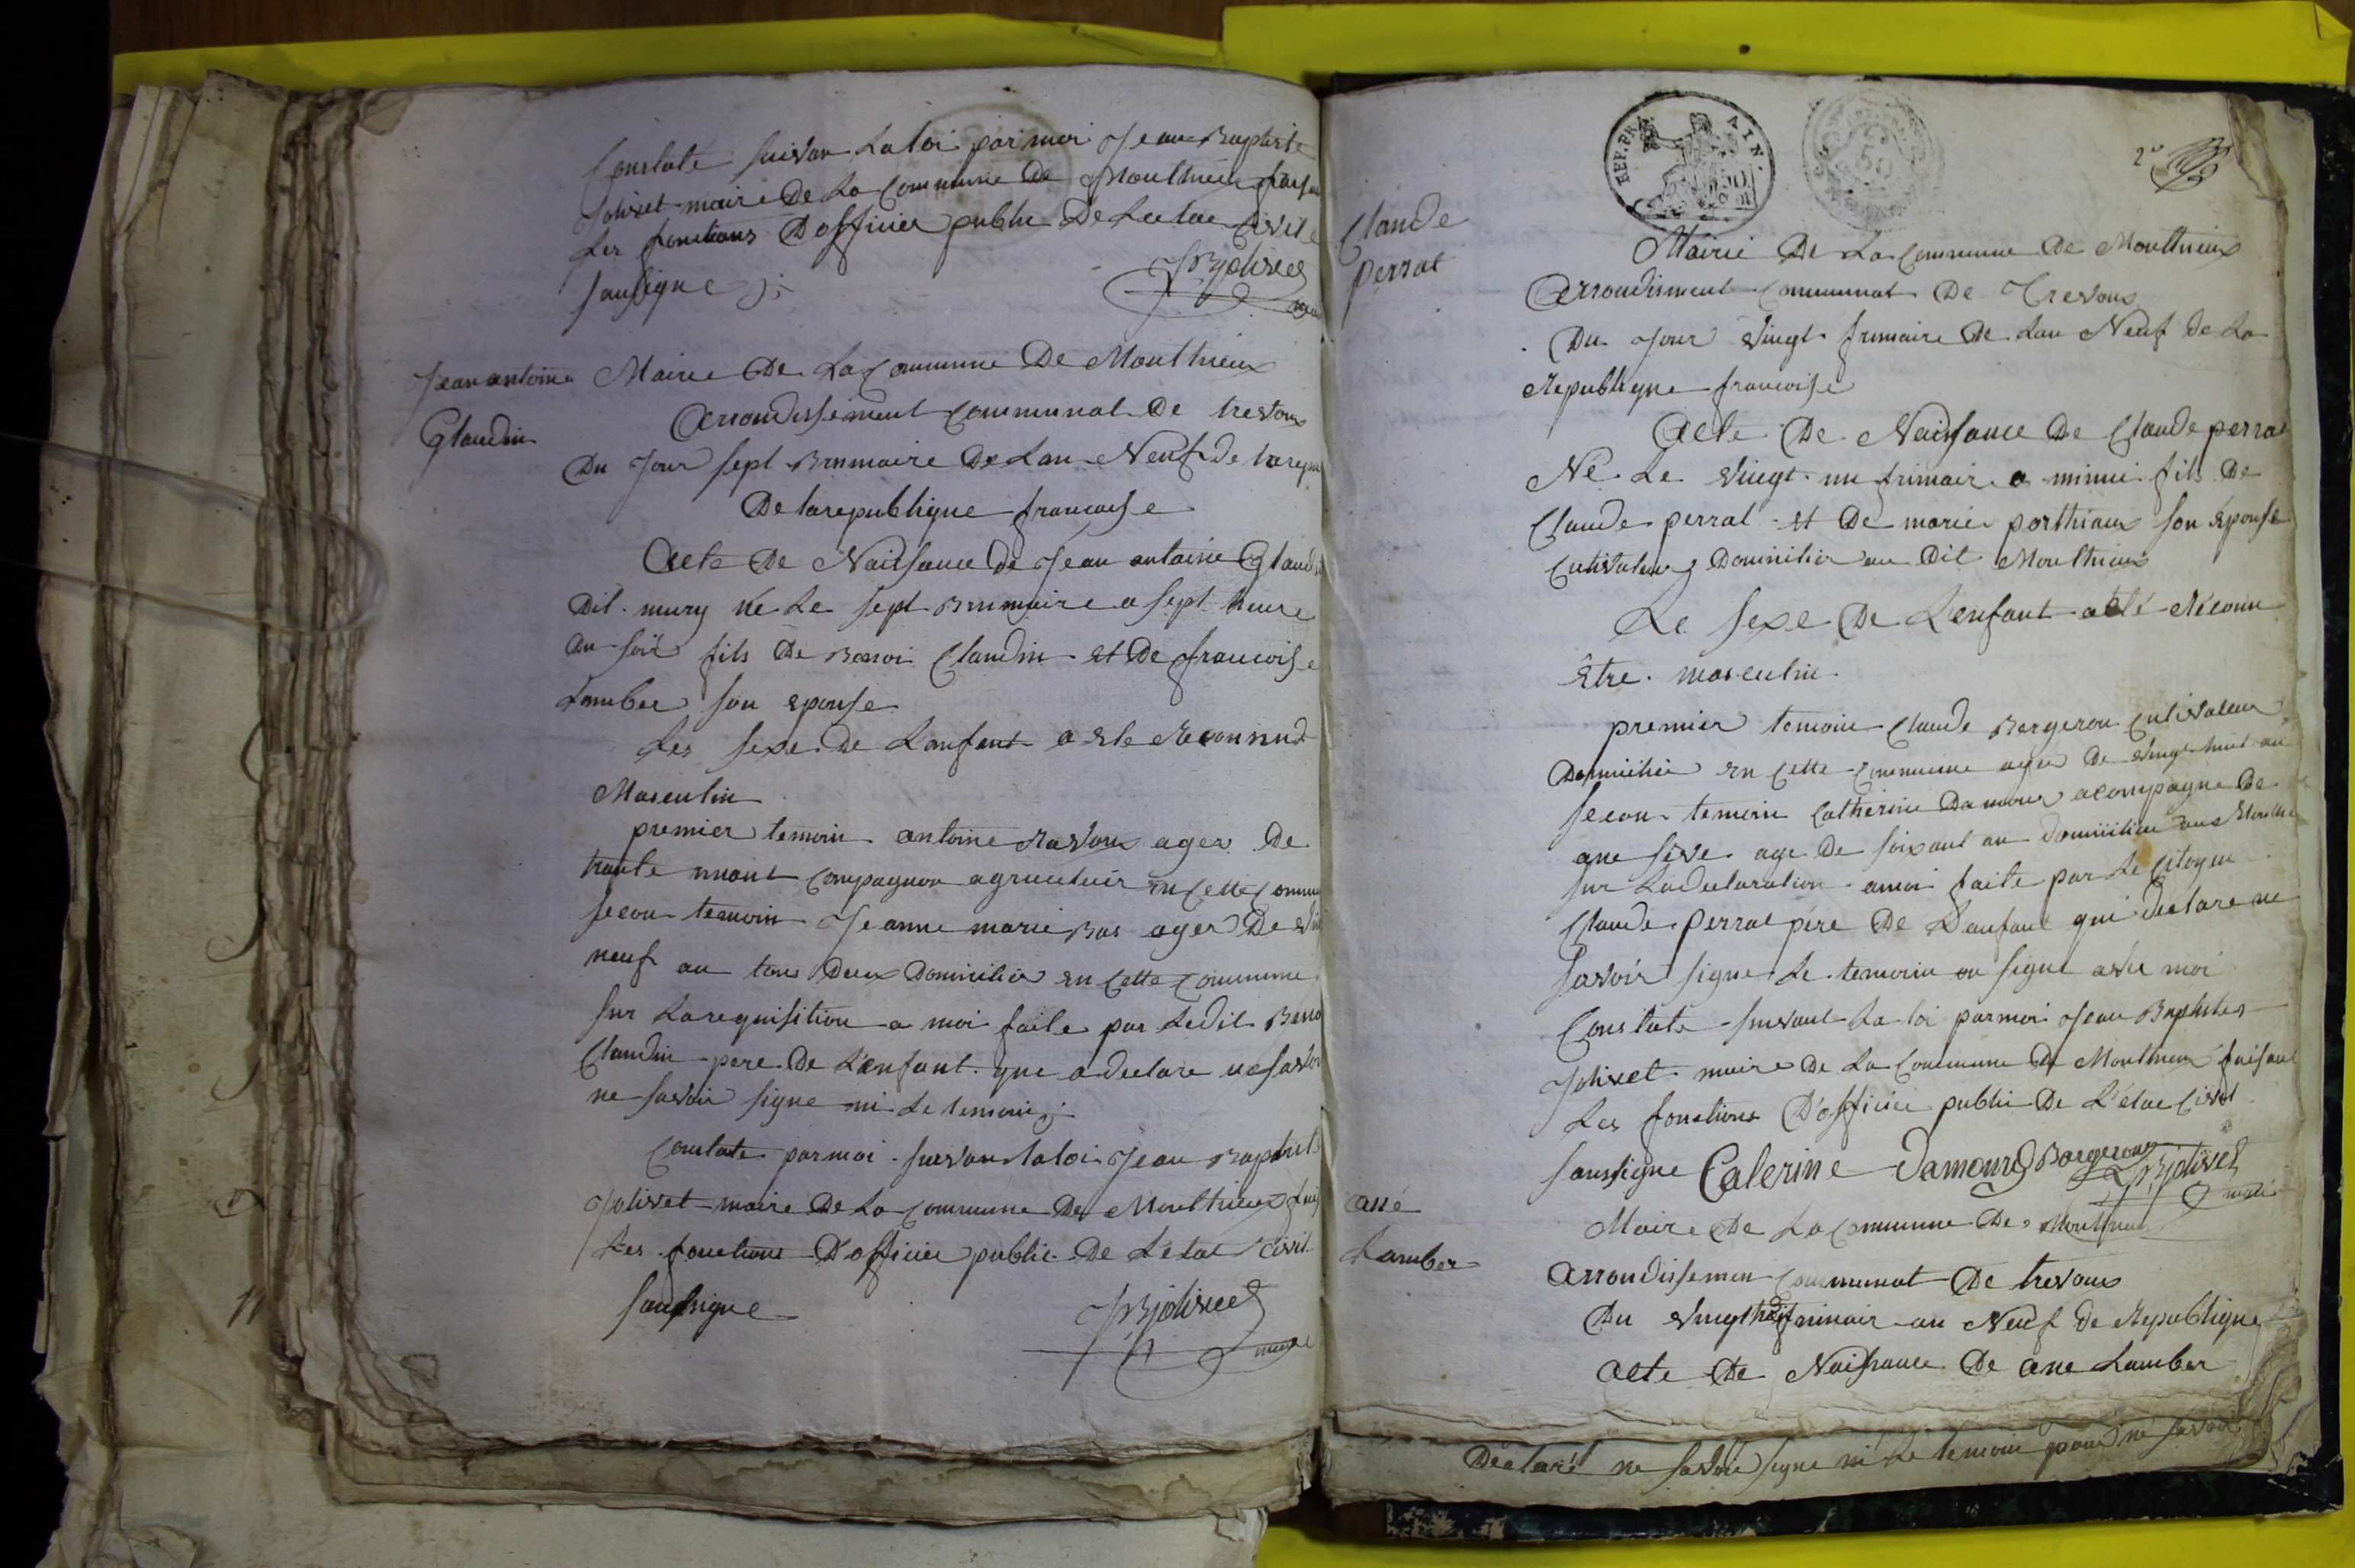 Constate suivan la loi par moi Jean Baptiste
Jolivet maire De La Commune De Monthieux
Les fonctions D officier public De Letae Civil
sousigne
JBJolivet
maire
Jean antoine
Glaudin
Mairie De La Commune De Monthieux
Arrondissement Communal De trevoux
Du Jour sept Brumaire De Lan Neuf De
De la republique francaise
Acte De Naissance de Jean antoine Glaudin
Dit mury Né Le sept Brumaire a sept heure
du soir fils De Benoi Claudin et De francoise
Lamber son epouse
Les sexe de Lanfant a ete Reconnud
Masculin
premier temoin antoine Ravoux ager De
trante compagnon agriculteur en Cette Commune
secon temoin Jeanne marie Bas ager De
neuf an tous Deux Domicilier en Cette Commune
sur La requisition a moi faite par Ledit Beno
Claudin pere De L'enfant que a declare ne savoir
ne savoir signe ni Le temoin
Constate par moi suivan la loi Jean Baptiste
Jolivet maire De La Commune De Monthieux
Les fonctions D'officier public De Letae Civil
sousigne
JBJolivet
maire
REP. FRA. AIN.
50
2e
Claude
perrat
Mairie De La Commune De Monthieux
Arrondisment Communal De Trevoux
Du Jour Vingt frimaire De Lan Neuf de La
Republique francoise
Acte De Naissance De Claude perrat
Né Le Vingt un frimaire a minui fils De
Claude perrat et De marie porthiaux son Epouse
Cultivateur Domicilier au Dit Monthieux
Le sexe De L'enfant a eté Réconu
Etre masculin
premier temoin Claude Bergeron Cultivateur
Domicilier en Cette Commune ager De Vingt huit an
secon temoin Catherine Damour acompagne De
age De soixant an Domicilier
sur La declaration a moi faite par Le Citoyen
Claude Perrat pere De Lanfant qui declare ne
savoir signe Le temoin on signe avec moi
Constate suivant La loi par moi Jean Baptiste
Jolivet maire De La Commune De Monthieux faisant
Les fonctions D'officier public De L'étae Civil
soussigne Caterine Damour Bergeron JBJolivet
maire
ané
Lamber
Maire De La Commune De Monthieux
Arrondissemen Communal De trevoux
Du frimair an Neuf de Republique
Acte De Naissance De ane Lamber
Déclaré ne savoir signe ni Le temoin pour ne savoir